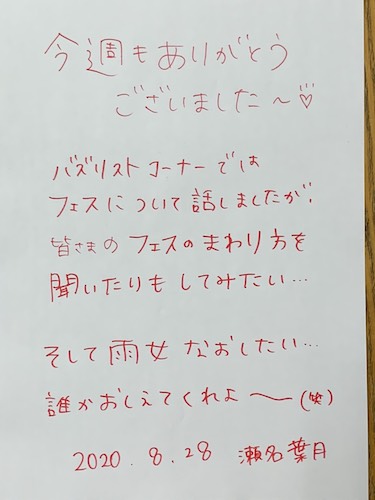 今週もありがとう
ございました〜♡
バズリストコーナーでは
フェスについて話しましたが、
皆さまのフェスのまわり方を
聞いたりもしてみたい…
そして雨女なおしたい…
誰かおしえてくれよ〜(笑)
2020.8.28 瀬名葉月